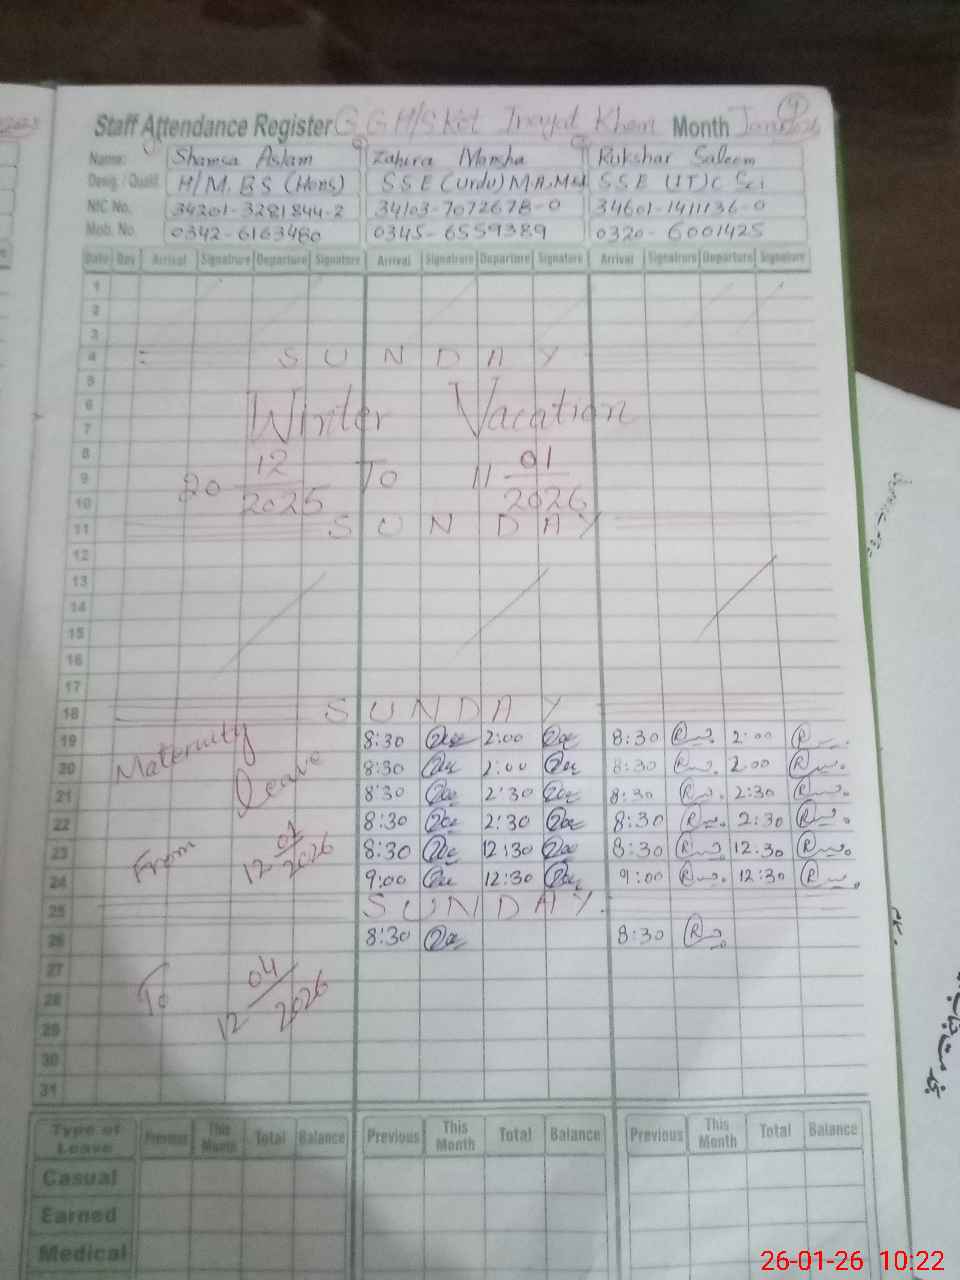 Staff Attendance Register G.G.H/S Kot Inayat Khan Month Jan 2026
Name: Shamsa Aslam Zahra Mansha Rukshar Saleem
Desig. / Qualif. H/M, BS (Hons) SSE (Urdu) M.A, M.Ed SSE (IT) C Sci
NIC No. 34201-3281844-2 34103-7072678-0 34601-1411136-0
Mob. No. 0342-6163480 0345-6559389 0320-6001425
Date Day Arrival Signature Departure Signature Arrival Signature Departure Signature Arrival Signature Departure Signature
1
2
3
4 SUNDAY
5
6
7 Winter Vacation
8
9 20 12/2025 To 11 01/2026
10
11 SUNDAY
12
13
14
15
16
17
18 SUNDAY
19 8:30 2:00 8:30 2:00
20 Maternity 8:30 2:00 8:30 2:00
21 leave 8:30 2:30 8:30 2:30
22 8:30 2:30 8:30 2:30
23 From 12 01/2026 8:30 12:30 8:30 12:30
24 9:00 12:30 9:00 12:30
25 SUNDAY
26 8:30 8:30
27
28 To 12 04/2026
29
30
31
Type of Leave Previous This Month Total Balance Previous This Month Total Balance Previous This Month Total Balance
Casual
Earned
Medical
26-01-26 10:22